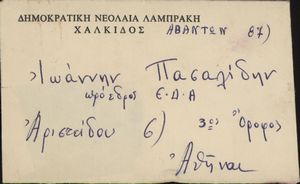 ΔΗΜΟΚΡΑΤΙΚΗ ΝΕΟΛΑΙΑ ΛΑΜΠΡΑΚΗ
ΧΑΛΚΙΔΟΣ ΑΒΑΝΤΩΝ 87)
Ἰωάννην Πασαλίδην
πρόεδρος Ε.Δ.Α
Ἀριστείδου 6) 3ος Ὄροφος
Ἀθήναι